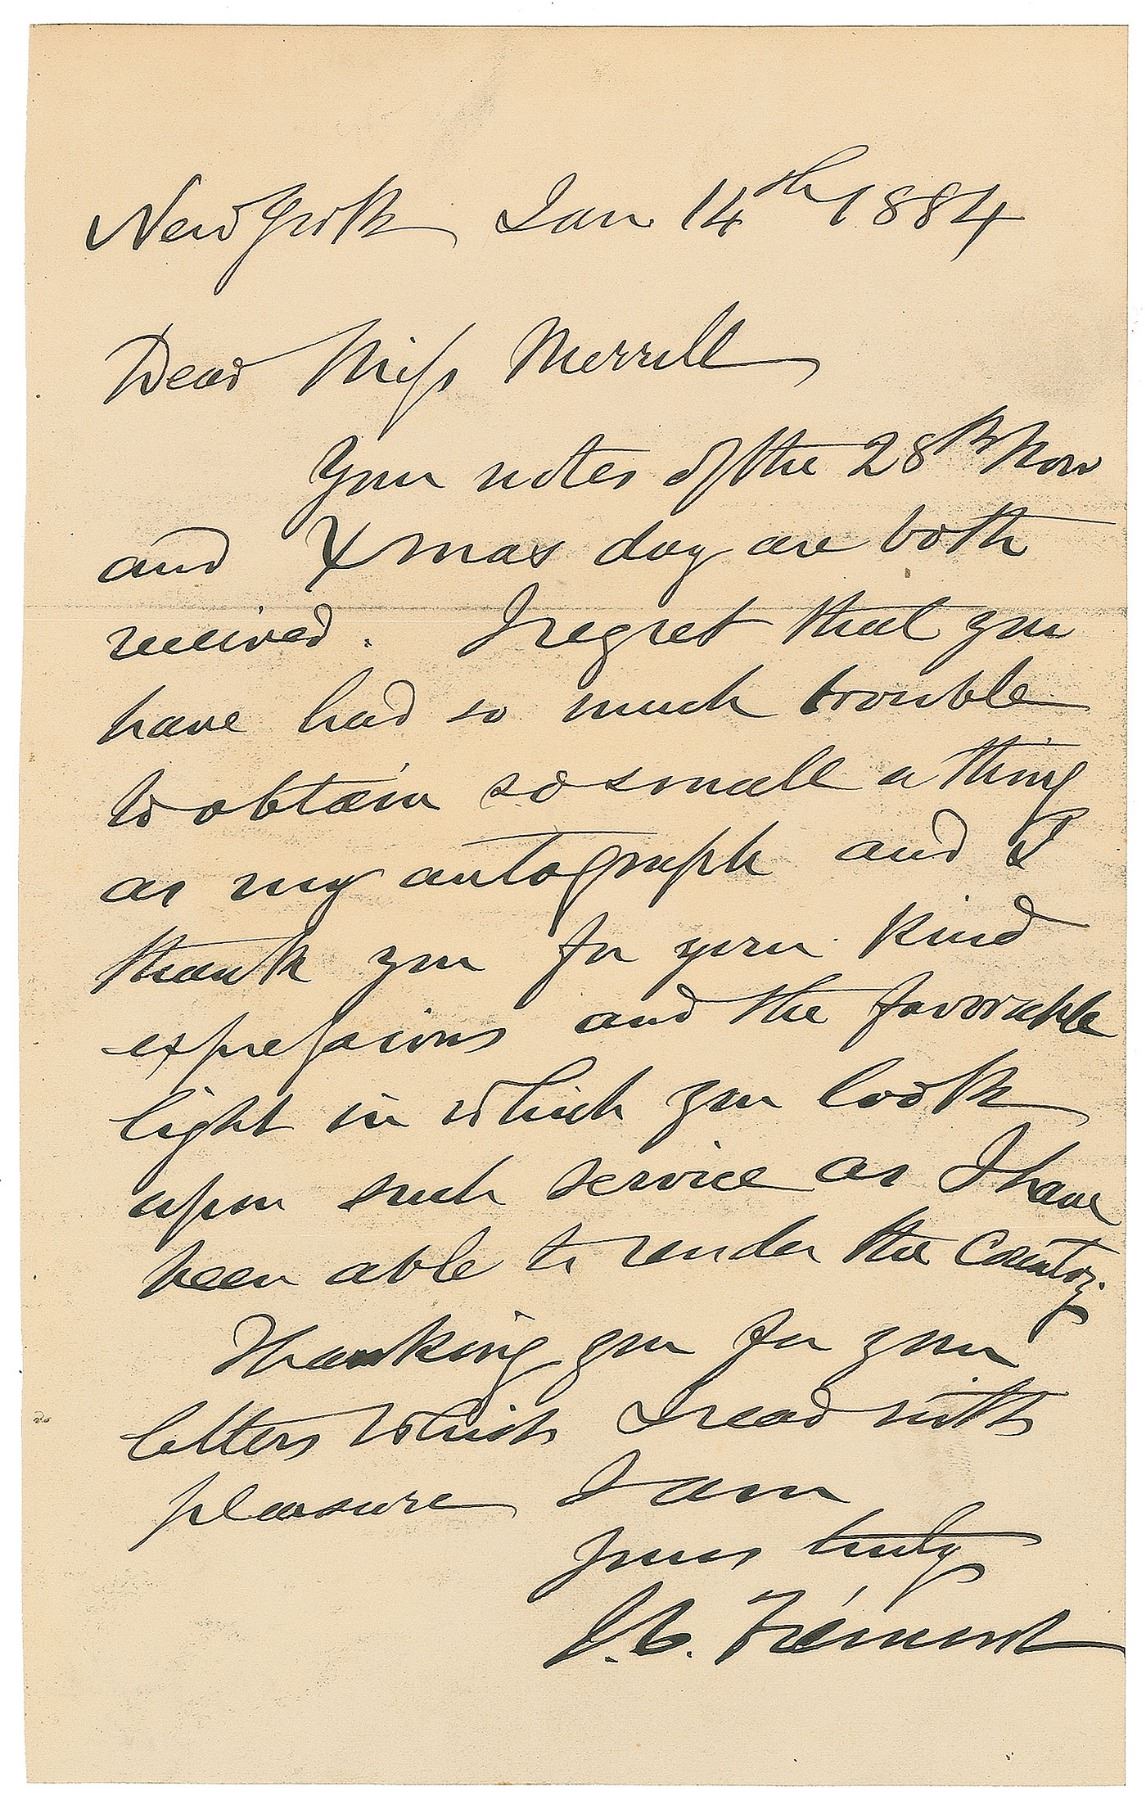 New York Jan 14th 1884
Dear Miss Merrill
Your notes of the 28th Nov
and Xmas day are both
received. I regret that you
have had so much trouble
to obtain so small a thing
as my autograph and I
thank you for your kind
expressions and the favorable
light in which you look
upon such service as I have
been able to render the Country.
Thanking you for your
letters which I read with
pleasure I am
yours truly
J. C. Frémont